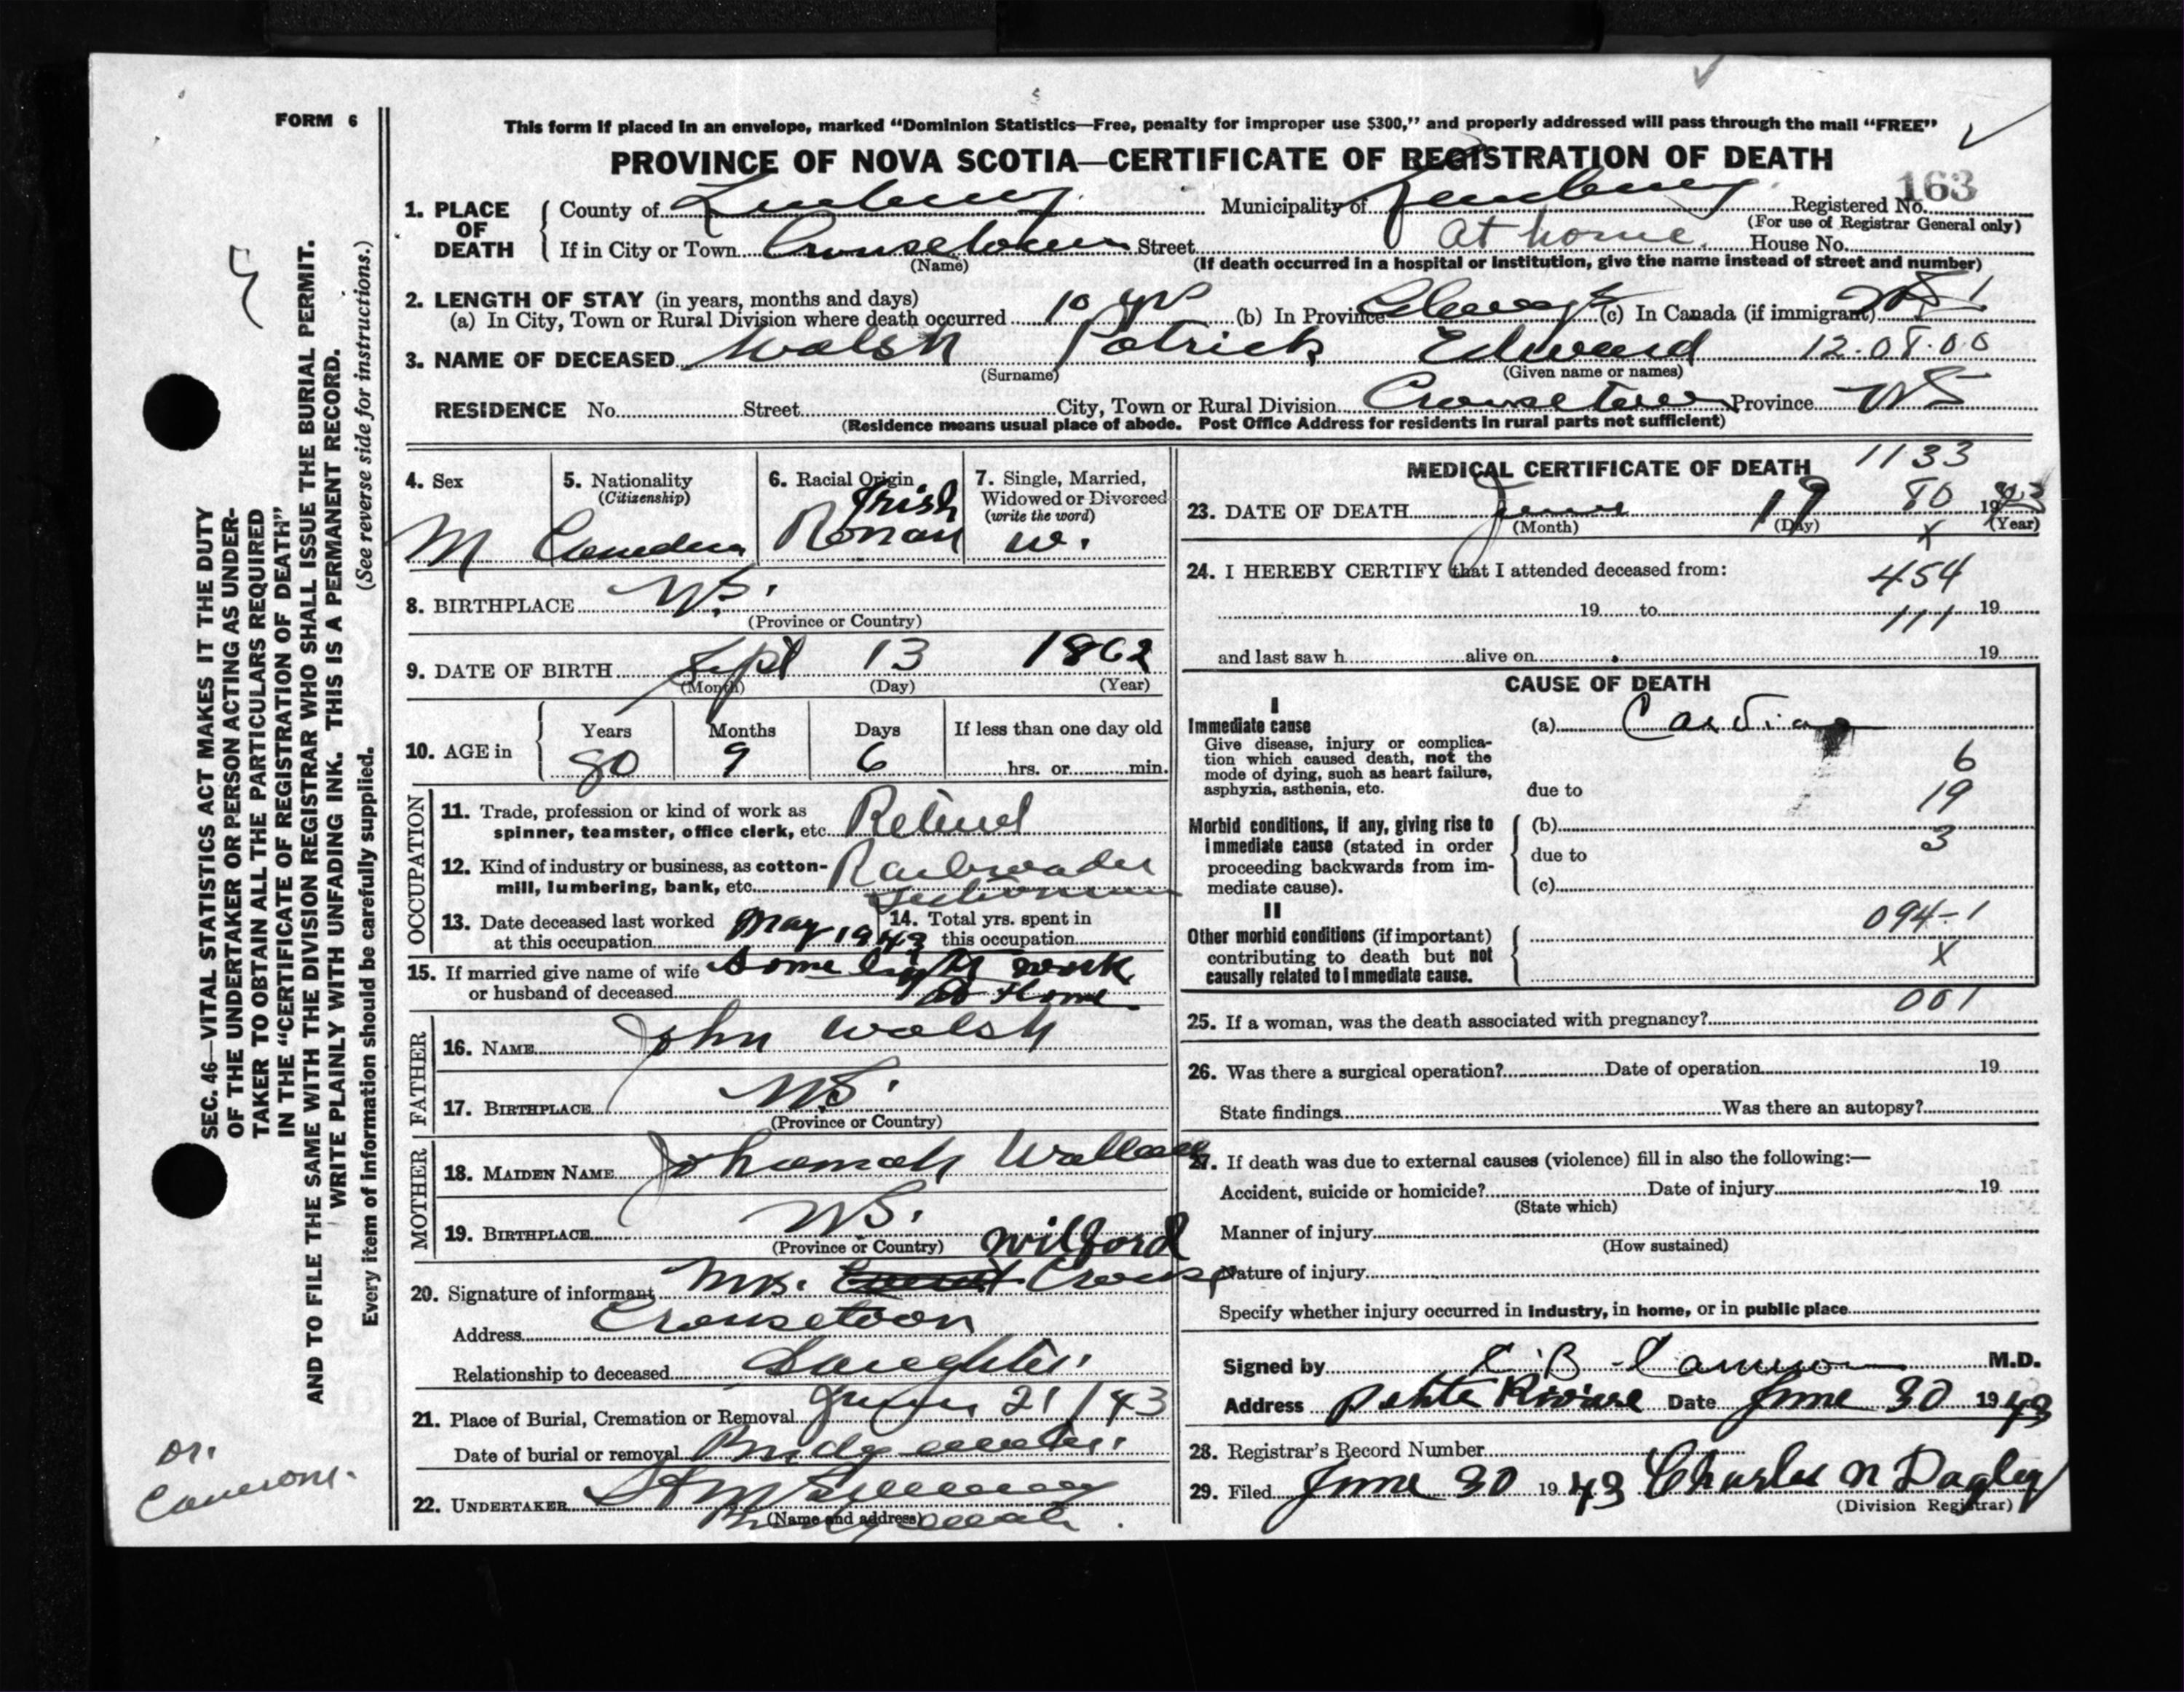 FORM 6
This form if placed in an envelope, marked “Dominion Statistics—Free, penalty for improper use $300,” and properly addressed will pass through the mail “FREE”
PROVINCE OF NOVA SCOTIA—CERTIFICATE OF REGISTRATION OF DEATH
163
1. PLACE OF DEATH
County of Lunenburg Municipality of Lunenburg Registered No.
(For use of Registrar General only)
If in City or Town Crousetown Street At home. House No.
(Name) (If death occurred in a hospital or institution, give the name instead of street and number)
2. LENGTH OF STAY (in years, months and days)
(a) In City, Town or Rural Division where death occurred 10 yrs (b) In Province Always (c) In Canada (if immigrant)
3. NAME OF DECEASED Walsh Patrick Edward 12.08.00
(Surname) (Given name or names)
RESIDENCE No. Street City, Town or Rural Division Crousetown Province NS
(Residence means usual place of abode. Post Office Address for residents in rural parts not sufficient)
4. Sex M
5. Nationality (Citizenship)
6. Racial Origin Irish
7. Single, Married, Widowed or Divorced (write the word) W.
8. BIRTHPLACE N.S.
(Province or Country)
9. DATE OF BIRTH Sept 13 1862
(Month) (Day) (Year)
10. AGE in Years 80 Months 9 Days 6 If less than one day old hrs. or min.
OCCUPATION
11. Trade, profession or kind of work as spinner, teamster, office clerk, etc. Retired
12. Kind of industry or business, as cotton-mill, lumbering, bank, etc.
13. Date deceased last worked at this occupation May 1943
14. Total yrs. spent in this occupation
15. If married give name of wife or husband of deceased
Some light work
Home
FATHER
16. NAME John Walsh
17. BIRTHPLACE N.S.
(Province or Country)
MOTHER
18. MAIDEN NAME Johannah Wallace
19. BIRTHPLACE N.S.
(Province or Country)
Wilford
20. Signature of informant Mrs. Crouse
Address Crousetown
Relationship to deceased Daughter.
21. Place of Burial, Cremation or Removal June 21/43
Date of burial or removal Bridgewater.
22. UNDERTAKER
(Name and address) Bridgewater
MEDICAL CERTIFICATE OF DEATH 1133
23. DATE OF DEATH June 19 80 1943
(Month) (Day) (Year)
X
24. I HEREBY CERTIFY that I attended deceased from: 454
19 to 111 19
and last saw h alive on 19
CAUSE OF DEATH
I
Immediate cause (a)
Give disease, injury or complication which caused death, not the mode of dying, such as heart failure, asphyxia, asthenia, etc.
6
due to 19
Morbid conditions, if any, giving rise to immediate cause (stated in order proceeding backwards from immediate cause).
(b)
due to 3
(c)
II
094-1
Other morbid conditions (if important) contributing to death but not causally related to immediate cause.
X
001
25. If a woman, was the death associated with pregnancy?
26. Was there a surgical operation? Date of operation 19
State findings Was there an autopsy?
27. If death was due to external causes (violence) fill in also the following:—
Accident, suicide or homicide? Date of injury 19
(State which)
Manner of injury
(How sustained)
Nature of injury
Specify whether injury occurred in industry, in home, or in public place
Signed by B Cameron M.D.
Address Petite Riviere Date June 30 1943
28. Registrar’s Record Number
29. Filed June 30 1943 Charles N Dagley
(Division Registrar)
SEC. 46—VITAL STATISTICS ACT MAKES IT THE DUTY
OF THE UNDERTAKER OR PERSON ACTING AS UNDER-
TAKER TO OBTAIN ALL THE PARTICULARS REQUIRED
IN THE “CERTIFICATE OF REGISTRATION OF DEATH”
AND TO FILE THE SAME WITH THE DIVISION REGISTRAR WHO SHALL ISSUE THE BURIAL PERMIT.
WRITE PLAINLY WITH UNFADING INK. THIS IS A PERMANENT RECORD.
Every item of information should be carefully supplied. (See reverse side for instructions.)
Dr.
Cameron.